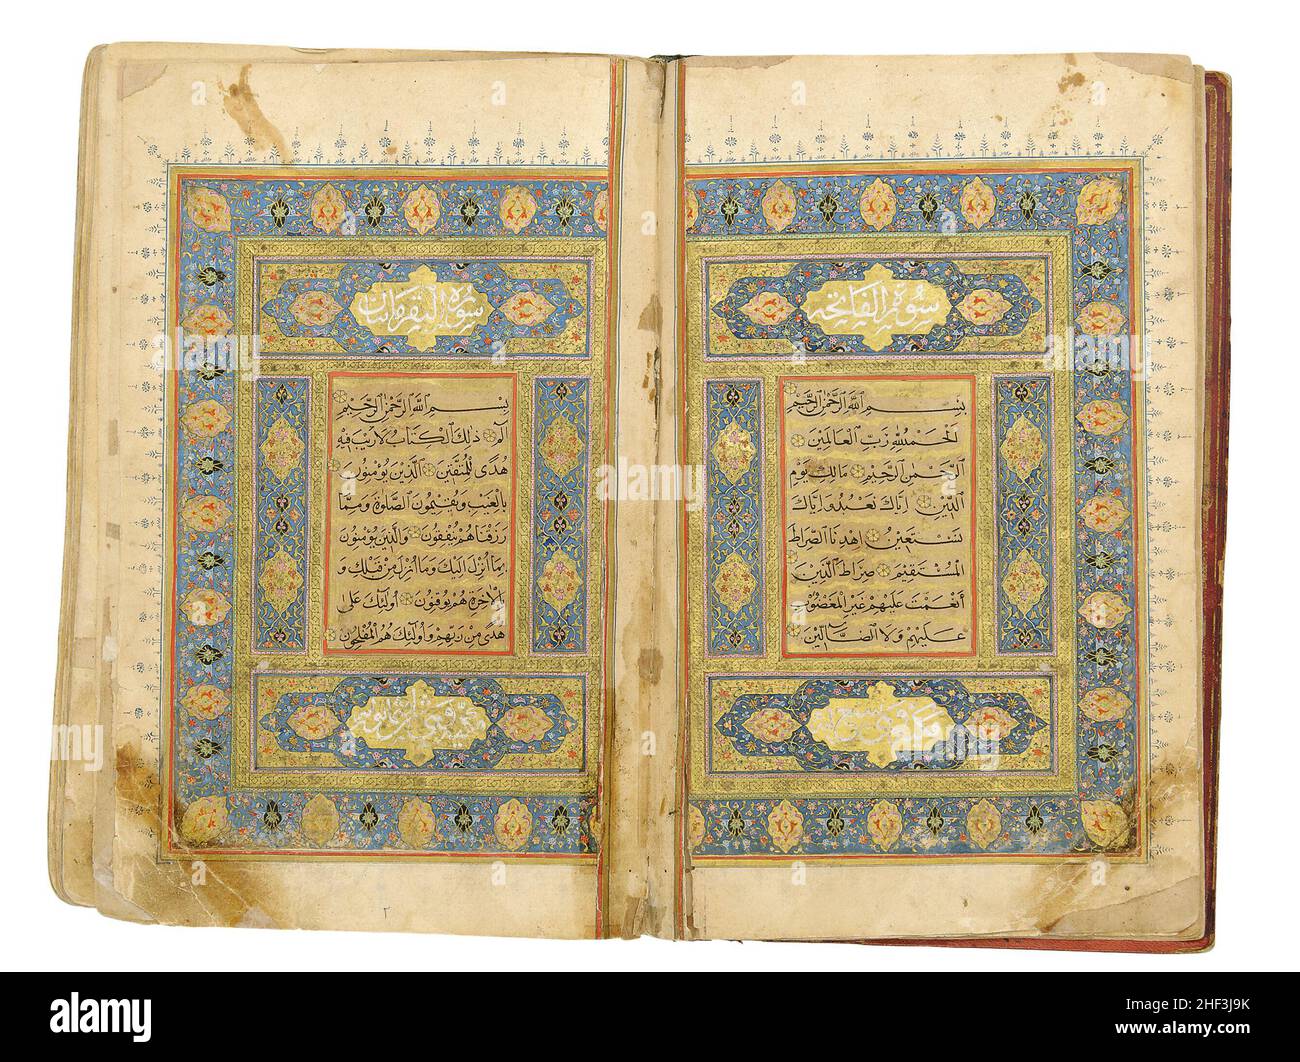 سورة الفاتحة
بسم الله الرحمن الرحيم
الحمد لله رب العالمين
الرحمن الرحيم مالك يوم
الدين اياك نعبد و اياك
نستعين اهدنا الصراط
المستقيم صراط الذين
أنعمت عليهم غير المغضوب
عليهم ولا الضالين
سورة البقرة
بسم الله الرحمن الرحيم
الم ذلك الكتاب لا ريب فيه
هدى للمتقين الذين يؤمنون
بالغيب ويقيمون الصلوة ومما
رزقناهم ينفقون والذين يؤمنون
بما أنزل اليك وما أنزل من قبلك و
بالاخرة هم يوقنون أولئك على
هدى من ربهم وأولئك هم المفلحون
٢
alamy
Image ID: 2HF3J9K
www.alamy.com